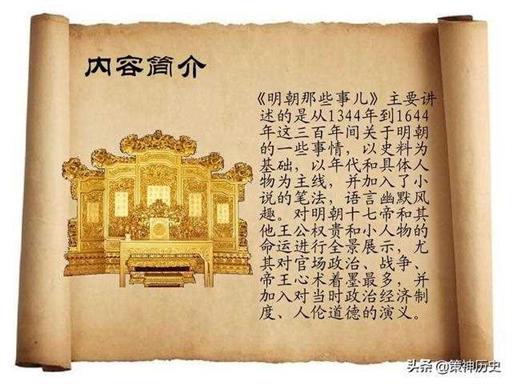 内容简介
《明朝那些事儿》主要讲
述的是从1344年到1644
年这三百年间关于明朝
的一些事情，以史料为
基础，以年代和具体人
物为主线，并加入了小
说的笔法，语言幽默风
趣。对明朝十七帝和其
他王公权贵和小人物的
命运进行全景展示，尤
其对官场政治、战争、
帝王心术着墨最多，并
加入对当时政治经济制
度、人伦道德的演义。
头条@策神历史